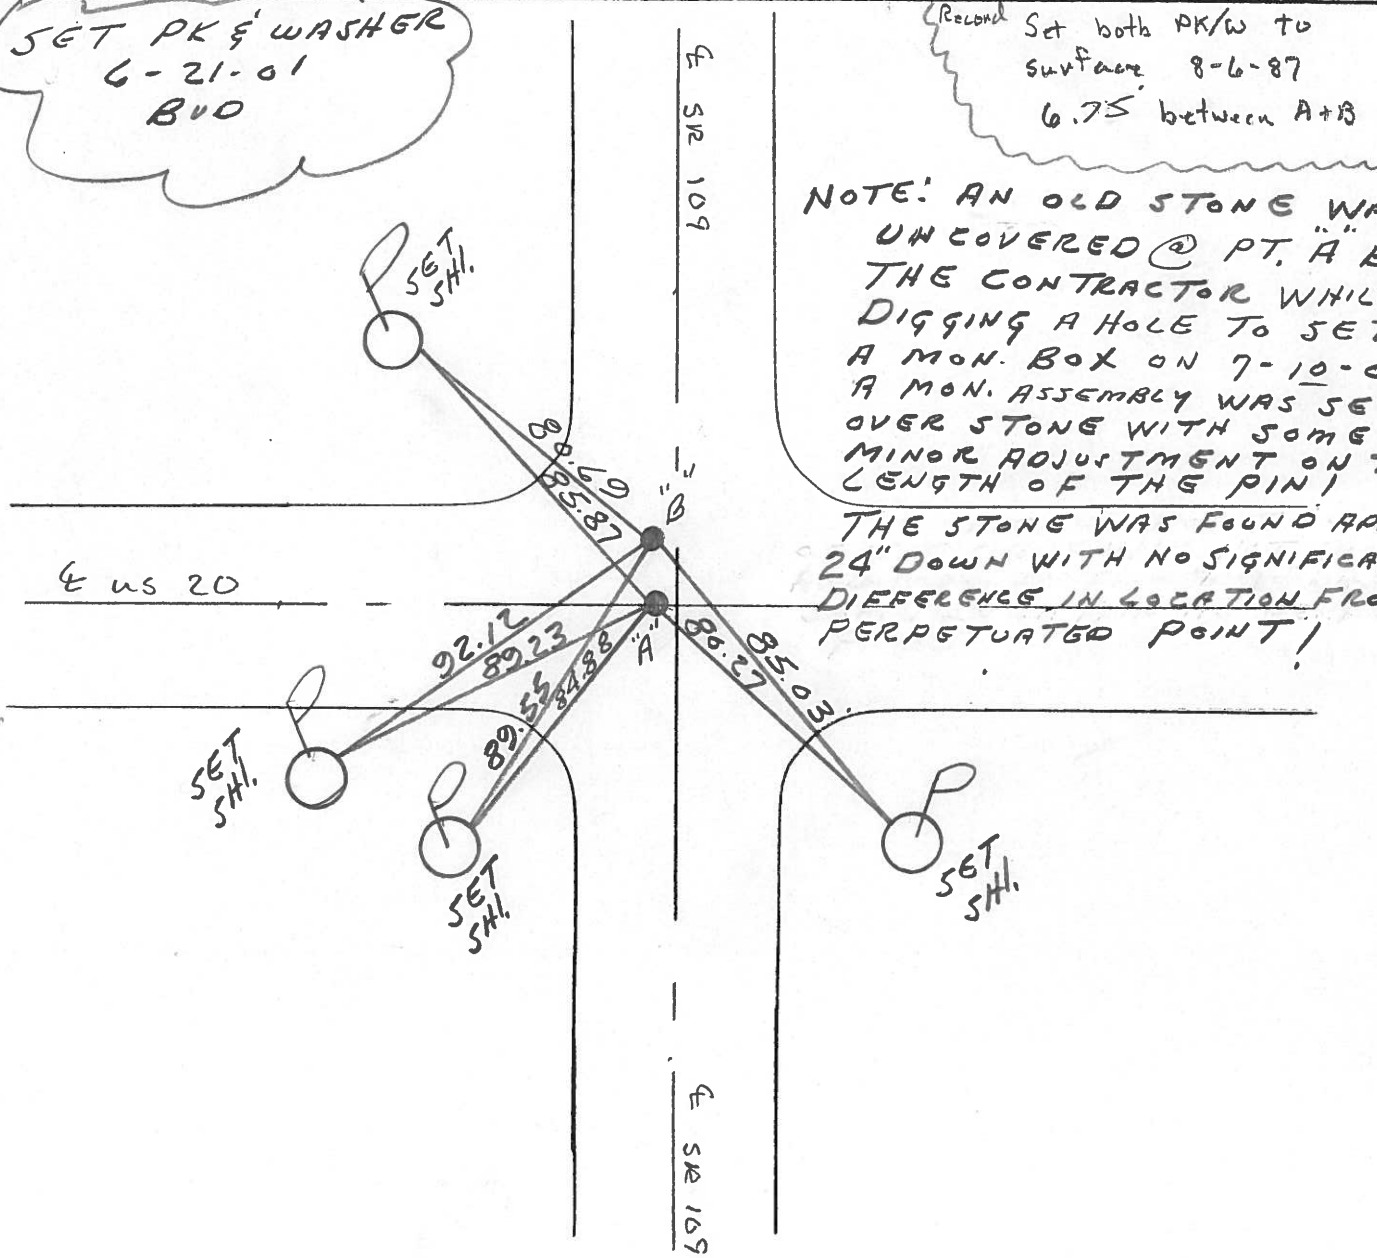 SET PK & WASHER
6-21-01
BUD
Record Set both PK/W to
surface 8-6-87
6.75 between A+B
℄ SR 109
NOTE: AN OLD STONE
UNCOVERED @ PT. "A"
THE CONTRACTOR
DIGGING A HOLE TO SET
A MON. BOX ON 7-10-
A MON. ASSEMBLY WAS
OVER STONE WITH SOME
MINOR ADJUSTMENT ON
LENGTH OF THE PIN!
THE STONE WAS FOUND
24" DOWN WITH NO
DIFFERENCE IN LOCATION
PERPETUATED POINT!
SET
SHI.
80.69
85.87
"B"
℄ US 20
"A"
92.12
89.23
89.55
84.88
86.27
85.03
SET
SHI.
SET
SHI.
SET
SHI.
℄ SR 109